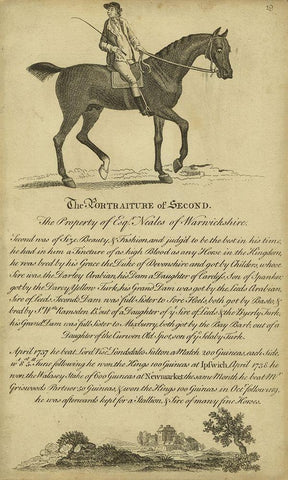 19
The PORTRAITURE of SECOND.
The Property of Esqr. Neales of Warwickshire.
Second was of Size Beauty, & Fashion, and judg'd to be the best in his time,
he had in him a Tincture of as high Blood as any Horse in the Kingdom,
he was bred by his Grace the Duke of Devonshire and got by Childers, whose
Sire was the Darley Arabian, his Dam a Daughter of Careless, Son of Spanker
got by the Darcy Yellow Turk, his Grand Dam was got by the Leeds Arabian,
Sire of Leeds. Seconds Dam was full Sister to Sore Heels, both got by Basto, &
bred by Sr. Wm. Ramsden Bt. out of a Daughter of ye Sire of Leeds & the Byerly Turk,
his Grand Dam was full Sister to Maxburry, both got by the Bay Bart. out of a
Daughter of the Curwen Old Spot, son of ye Selaby Turk.
April 1737 he beat Lord Visct. Lonsdales Sultan a Match 200 Guineas, each Side,
ye 8th June following he won the Kings 100 Guineas at Ipswich, April 1738 he
won the Wallasey Stake of 600 Guineas at Newmarket the same Month he beat Mr.
Griswoods Partner 50 Guineas, & won the Kings 100 Guineas in Octr. following,
he was afterwards kept for a Stallion, & Sire of many fine Horses.